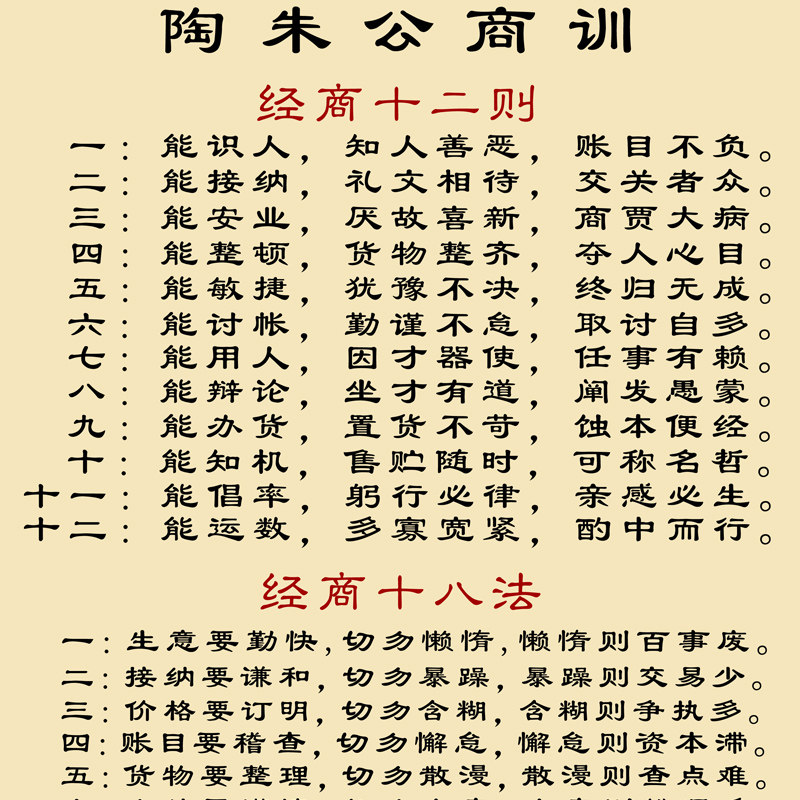 陶朱公商训
经商十二则
一：能识人，知人善恶，账目不负。
二：能接纳，礼文相待，交关者众。
三：能安业，厌故喜新，商贾大病。
四：能整顿，货物整齐，夺人心目。
五：能敏捷，犹豫不决，终归无成。
六：能讨帐，勤谨不怠，取讨自多。
七：能用人，因才器使，任事有赖。
八：能辩论，坐才有道，阐发愚蒙。
九：能办货，置货不苛，蚀本便经。
十：能知机，售贮随时，可称名哲。
十一：能倡率，躬行必律，亲感必生。
十二：能运数，多寡宽紧，酌中而行。
经商十八法
一：生意要勤快，切勿懒惰，懒惰则百事废。
二：接纳要谦和，切勿暴躁，暴躁则交易少。
三：价格要订明，切勿含糊，含糊则争执多。
四：账目要稽查，切勿懈怠，懈怠则资本滞。
五：货物要整理，切勿散漫，散漫则查点难。